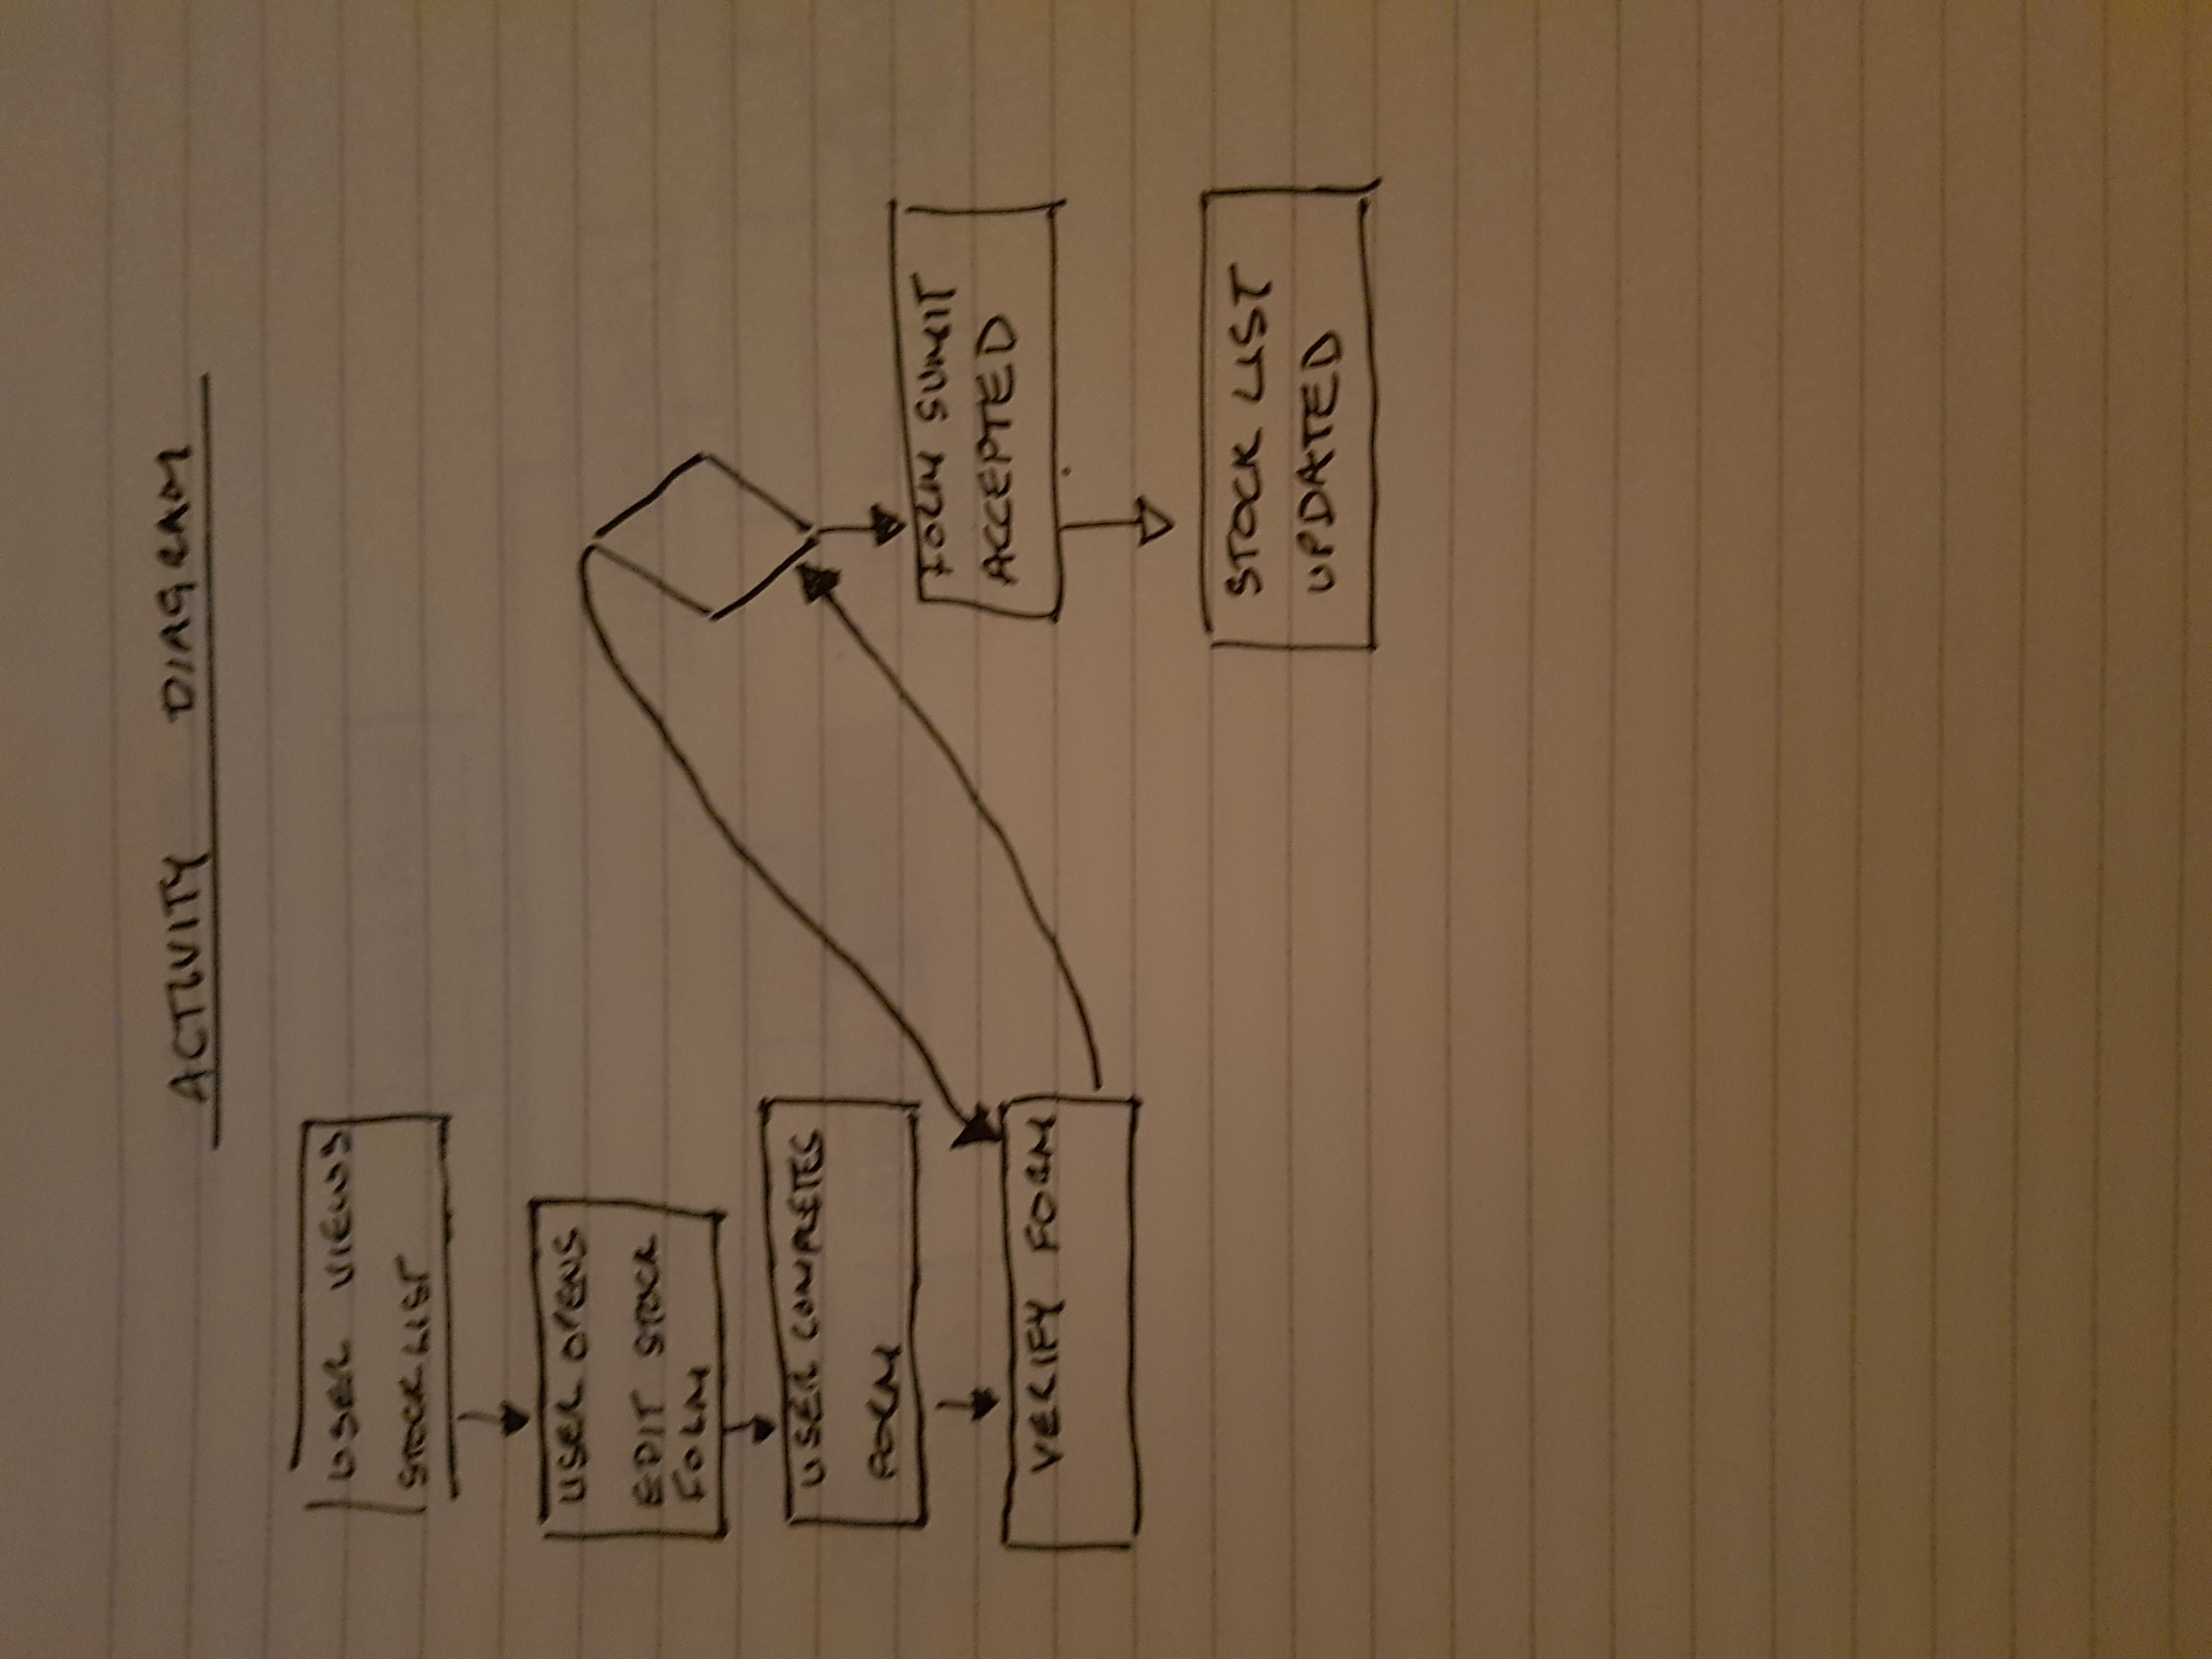 ACTIVITY DIAGRAM
USER VIEWS
STOCK LIST
USER OPENS
EDIT STOCK
FORM
USER COMPLETES
FORM
VERIFY FORM
FORM SUMIT
ACCEPTED
STOCK LIST
UPDATED